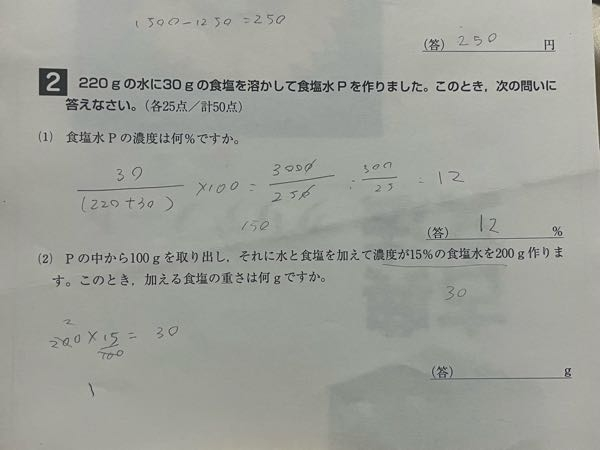 1500-1250=250
(答) 250 円
2 220gの水に30gの食塩を溶かして食塩水Pを作りました。このとき,次の問いに
答えなさい。(各25点/計50点)
(1) 食塩水Pの濃度は何%ですか。
30/(220+30) ×100 = 3000/250 = 300/25 = 12
150
(答) 12 %
(2) Pの中から100gを取り出し,それに水と食塩を加えて濃度が15%の食塩水を200g作りま
す。このとき,加える食塩の重さは何gですか。
30
2
200×15/100 = 30
(答) g
1